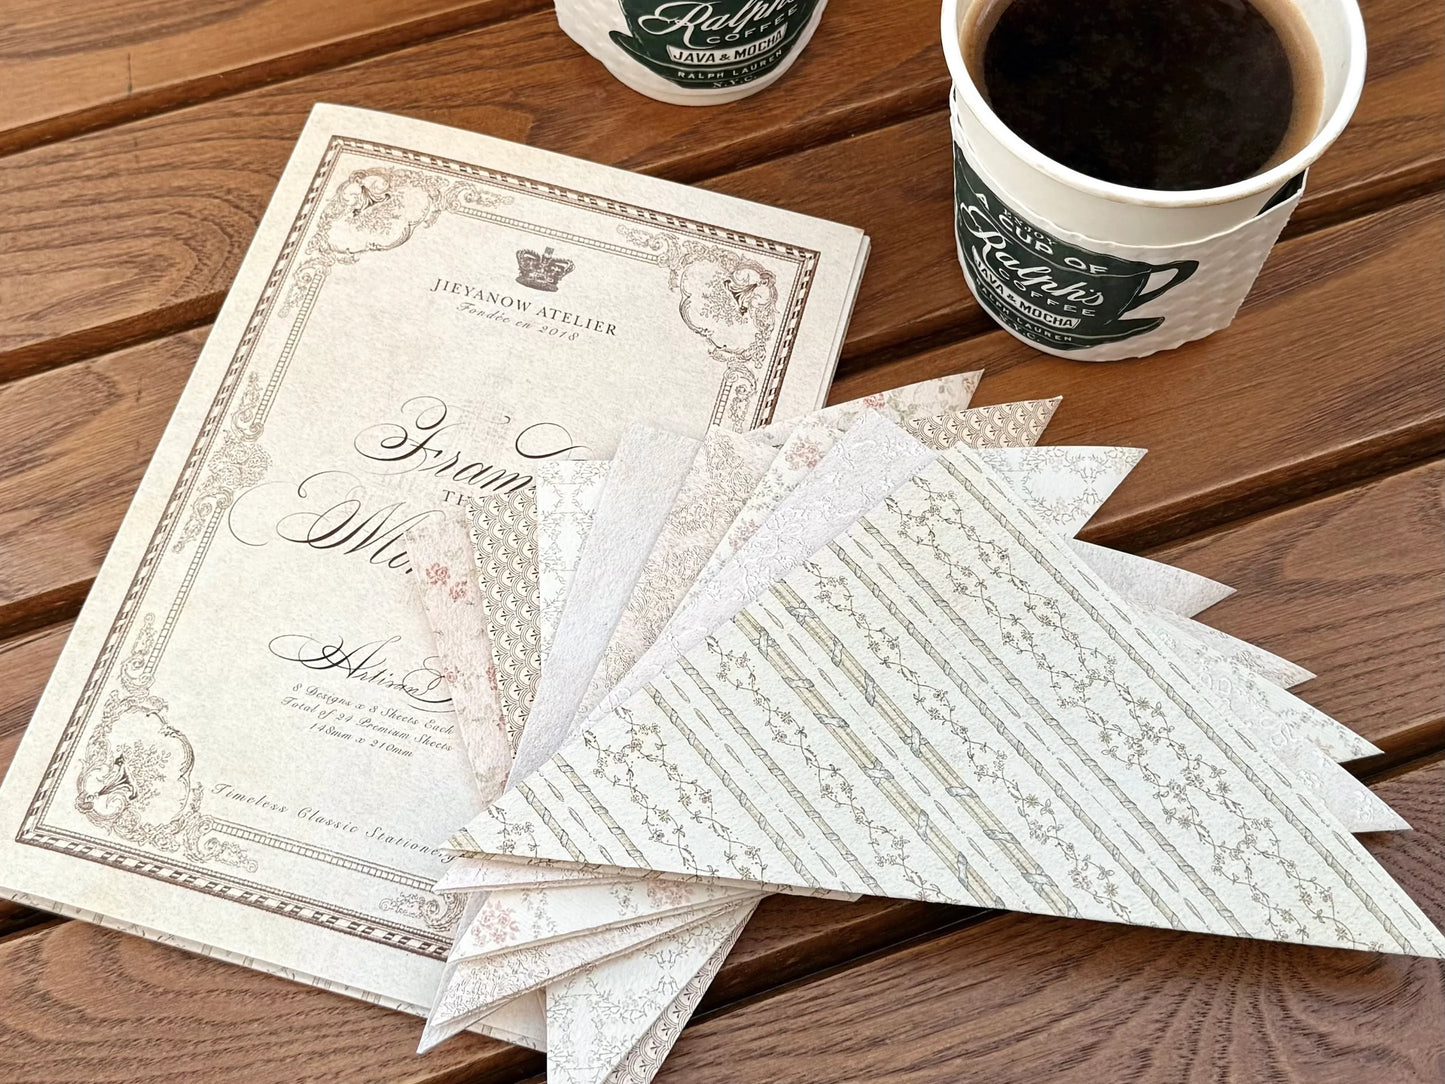 Ralph's
COFFEE
JAVA & MOCHA
RALPH LAUREN
N.Y.C.
ENJOY
A CUP OF
Ralph's
COFFEE
JAVA & MOCHA
RALPH LAUREN
N.Y.C.
JIEYANOW ATELIER
Fondée en 2018
Artisan
8 Designs x 3 Sheets Each
Total of 24 Premium Sheets
148mm x 210mm
Timeless Classic Stationery